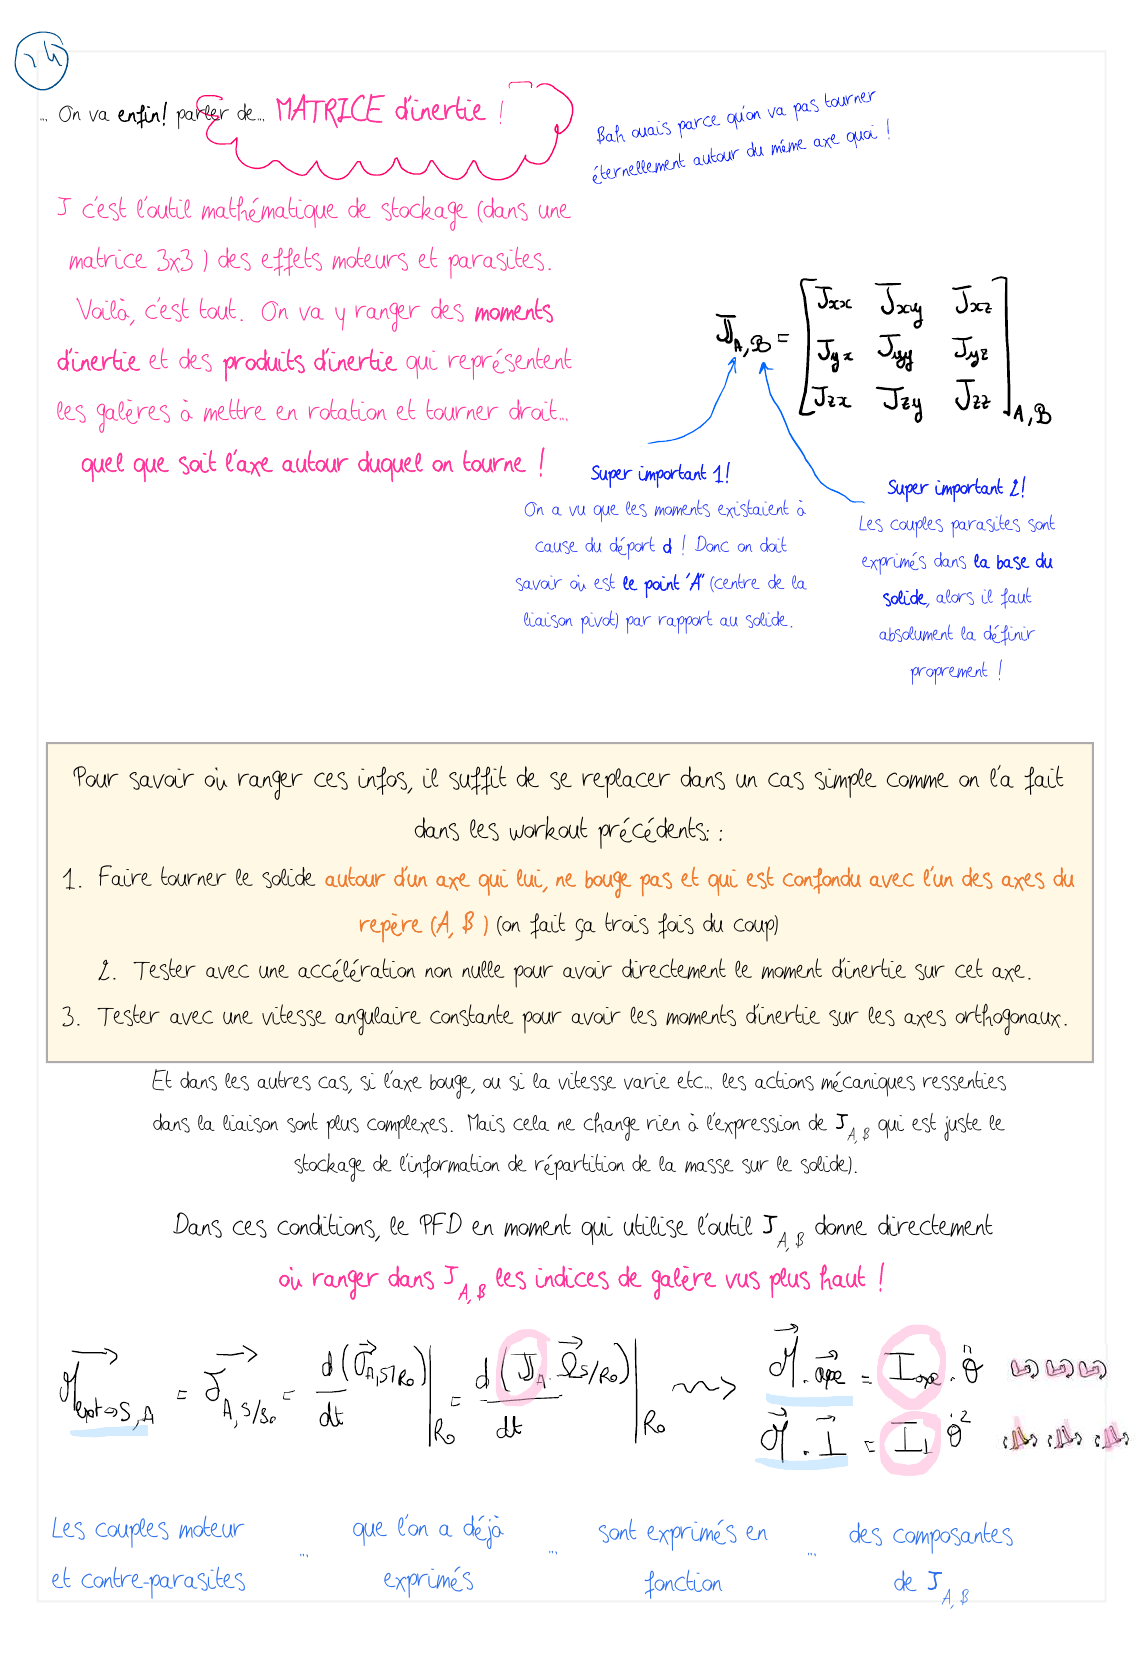 24
... On va enfin! parler de... MATRICE d'inertie !
Bah ouais parce qu'on va pas tourner
éternellement autour du même axe quoi !
J c'est l'outil mathématique de stockage (dans une
matrice 3x3 ) des effets moteurs et parasites.
Voilà, c'est tout. On va y ranger des moments
d'inertie et des produits d'inertie qui représentent
les galères à mettre en rotation et tourner droit...
quel que soit l'axe autour duquel on tourne !
J_A,B = [ Jxx Jxy Jxz
Jyx Jyy Jyz
Jzx Jzy Jzz ]_A,B
Super important 1!
On a vu que les moments existaient à
cause du déport d ! Donc on doit
savoir où est le point "A" (centre de la
liaison pivot) par rapport au solide.
Super important 2!
Les couples parasites sont
exprimés dans la base du
solide, alors il faut
absolument la définir
proprement !
Pour savoir où ranger ces infos, il suffit de se replacer dans un cas simple comme on l'a fait
dans les workout précédents: :
1. Faire tourner le solide autour d'un axe qui lui, ne bouge pas et qui est confondu avec l'un des axes du
repère (A, B ) (on fait ça trois fois du coup)
2. Tester avec une accélération non nulle pour avoir directement le moment d'inertie sur cet axe.
3. Tester avec une vitesse angulaire constante pour avoir les moments d'inertie sur les axes orthogonaux.
Et dans les autres cas, si l'axe bouge, ou si la vitesse varie etc... les actions mécaniques ressenties
dans la liaison sont plus complexes. Mais cela ne change rien à l'expression de J_A,B qui est juste le
stockage de l'information de répartition de la masse sur le solide).
Dans ces conditions, le PFD en moment qui utilise l'outil J_A,B donne directement
où ranger dans J_A,B les indices de galère vus plus haut !
M⃗_ext→S,A = δ⃗_A,S/R₀ = d(σ⃗_A,S/R₀)/dt |_R₀ = d(J_A · Ω⃗_S/R₀)/dt |_R₀ ⇝ M⃗ . axe⃗ = I_axe . θ̈
M⃗ . ⊥⃗ = I_⊥ θ̇²
Les couples moteur
et contre-parasites
...
que l'on a déjà
exprimés
...
sont exprimés en
fonction
...
des composantes
de J_A,B